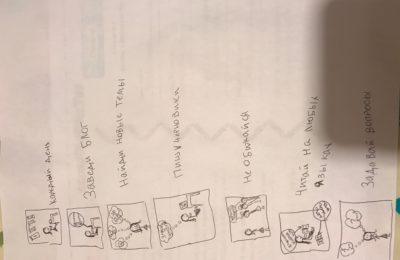 каждый день
Заведи блог
Найди новые темы
Пиши черновики
Не обижайся
Читай на любых
языках
Задавай вопросы